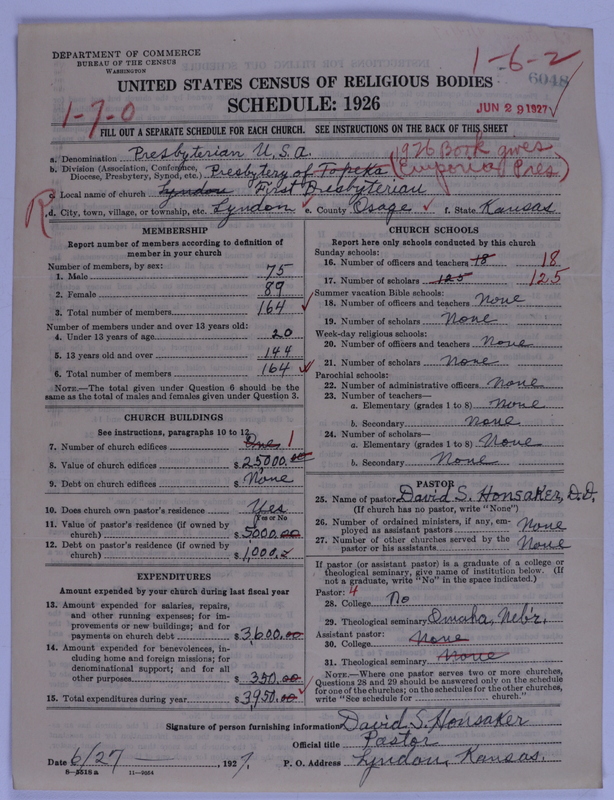 DEPARTMENT OF COMMERCE
BUREAU OF THE CENSUS
WASHINGTON
1-6-2
6048
UNITED STATES CENSUS OF RELIGIOUS BODIES
SCHEDULE: 1926
JUN 29 1927
1-7-0
FILL OUT A SEPARATE SCHEDULE FOR EACH CHURCH. SEE INSTRUCTIONS ON THE BACK OF THIS SHEET
a. Denomination Presbyterian U.S.A.
1926 Book gives
b. Division (Association, Conference, Diocese, Presbytery, Synod, etc.) Presbytery of Topeka (Emporia Pres)
c. Local name of church Lyndon First Presbyterian
R
d. City, town, village, or township, etc. Lyndon e. County Osage f. State Kansas
MEMBERSHIP
Report number of members according to definition of
member in your church
Number of members, by sex:
1. Male 75
2. Female 89
3. Total number of members 164
Number of members under and over 13 years old:
4. Under 13 years of age 20
5. 13 years old and over 144
6. Total number of members 164
NOTE.—The total given under Question 6 should be
same as the total of males and females given under Question 3.
CHURCH BUILDINGS
See instructions, paragraphs 10 to 12
7. Number of church edifices One 1
8. Value of church edifices $ 25000.00
9. Debt on church edifices $ None
10. Does church own pastor's residence Yes
(Yes or No
11. Value of pastor's residence (if owned by
church) $ 5000.00
12. Debt on pastor's residence (if owned by
church) $ 1,000.
EXPENDITURES
Amount expended by your church during last fiscal year
13. Amount expended for salaries, repairs,
and other running expenses; for im-
provements or new buildings; and for
payments on church debt $ 3,600.00
14. Amount expended for benevolences, in-
cluding home and foreign missions; for
denominational support; and for all
other purposes $ 350.00
15. Total expenditures during year $ 3950.00
CHURCH SCHOOLS
Report here only schools conducted by this church
Sunday schools:
16. Number of officers and teachers 18 18
17. Number of scholars 125 125
Summer vacation Bible schools:
18. Number of officers and teachers None
19. Number of scholars None
Week-day religious schools:
20. Number of officers and teachers None
21. Number of scholars None
Parochial schools:
22. Number of administrative officers None
23. Number of teachers—
a. Elementary (grades 1 to 8) None
b. Secondary None
24. Number of scholars—
a. Elementary (grades 1 to 8) None
b. Secondary None
PASTOR
25. Name of pastor David S. Honsaker, D.D.
(If church has no pastor, write "None")
26. Number of ordained ministers, if any, em-
ployed as assistant pastors None
27. Number of other churches served by the
pastor or his assistants None
If pastor (or assistant pastor) is a graduate of a college or
theological seminary, give name of institution below. (If
not a graduate, write "No" in the space indicated.)
Pastor: 4
28. College No
29. Theological seminary Omaha, Nebr.
Assistant pastor:
30. College None
31. Theological seminary None
NOTE.—Where one pastor serves two or more churches,
Questions 28 and 29 should be answered only on the schedule
for one of the churches; on the schedules for the other churches,
write "See schedule for church."
Signature of person furnishing information David S. Honsaker
Official title Pastor
Date 6/27 , 1927. P. O. Address Lyndon, Kansas.
8—5518 a 11—9264